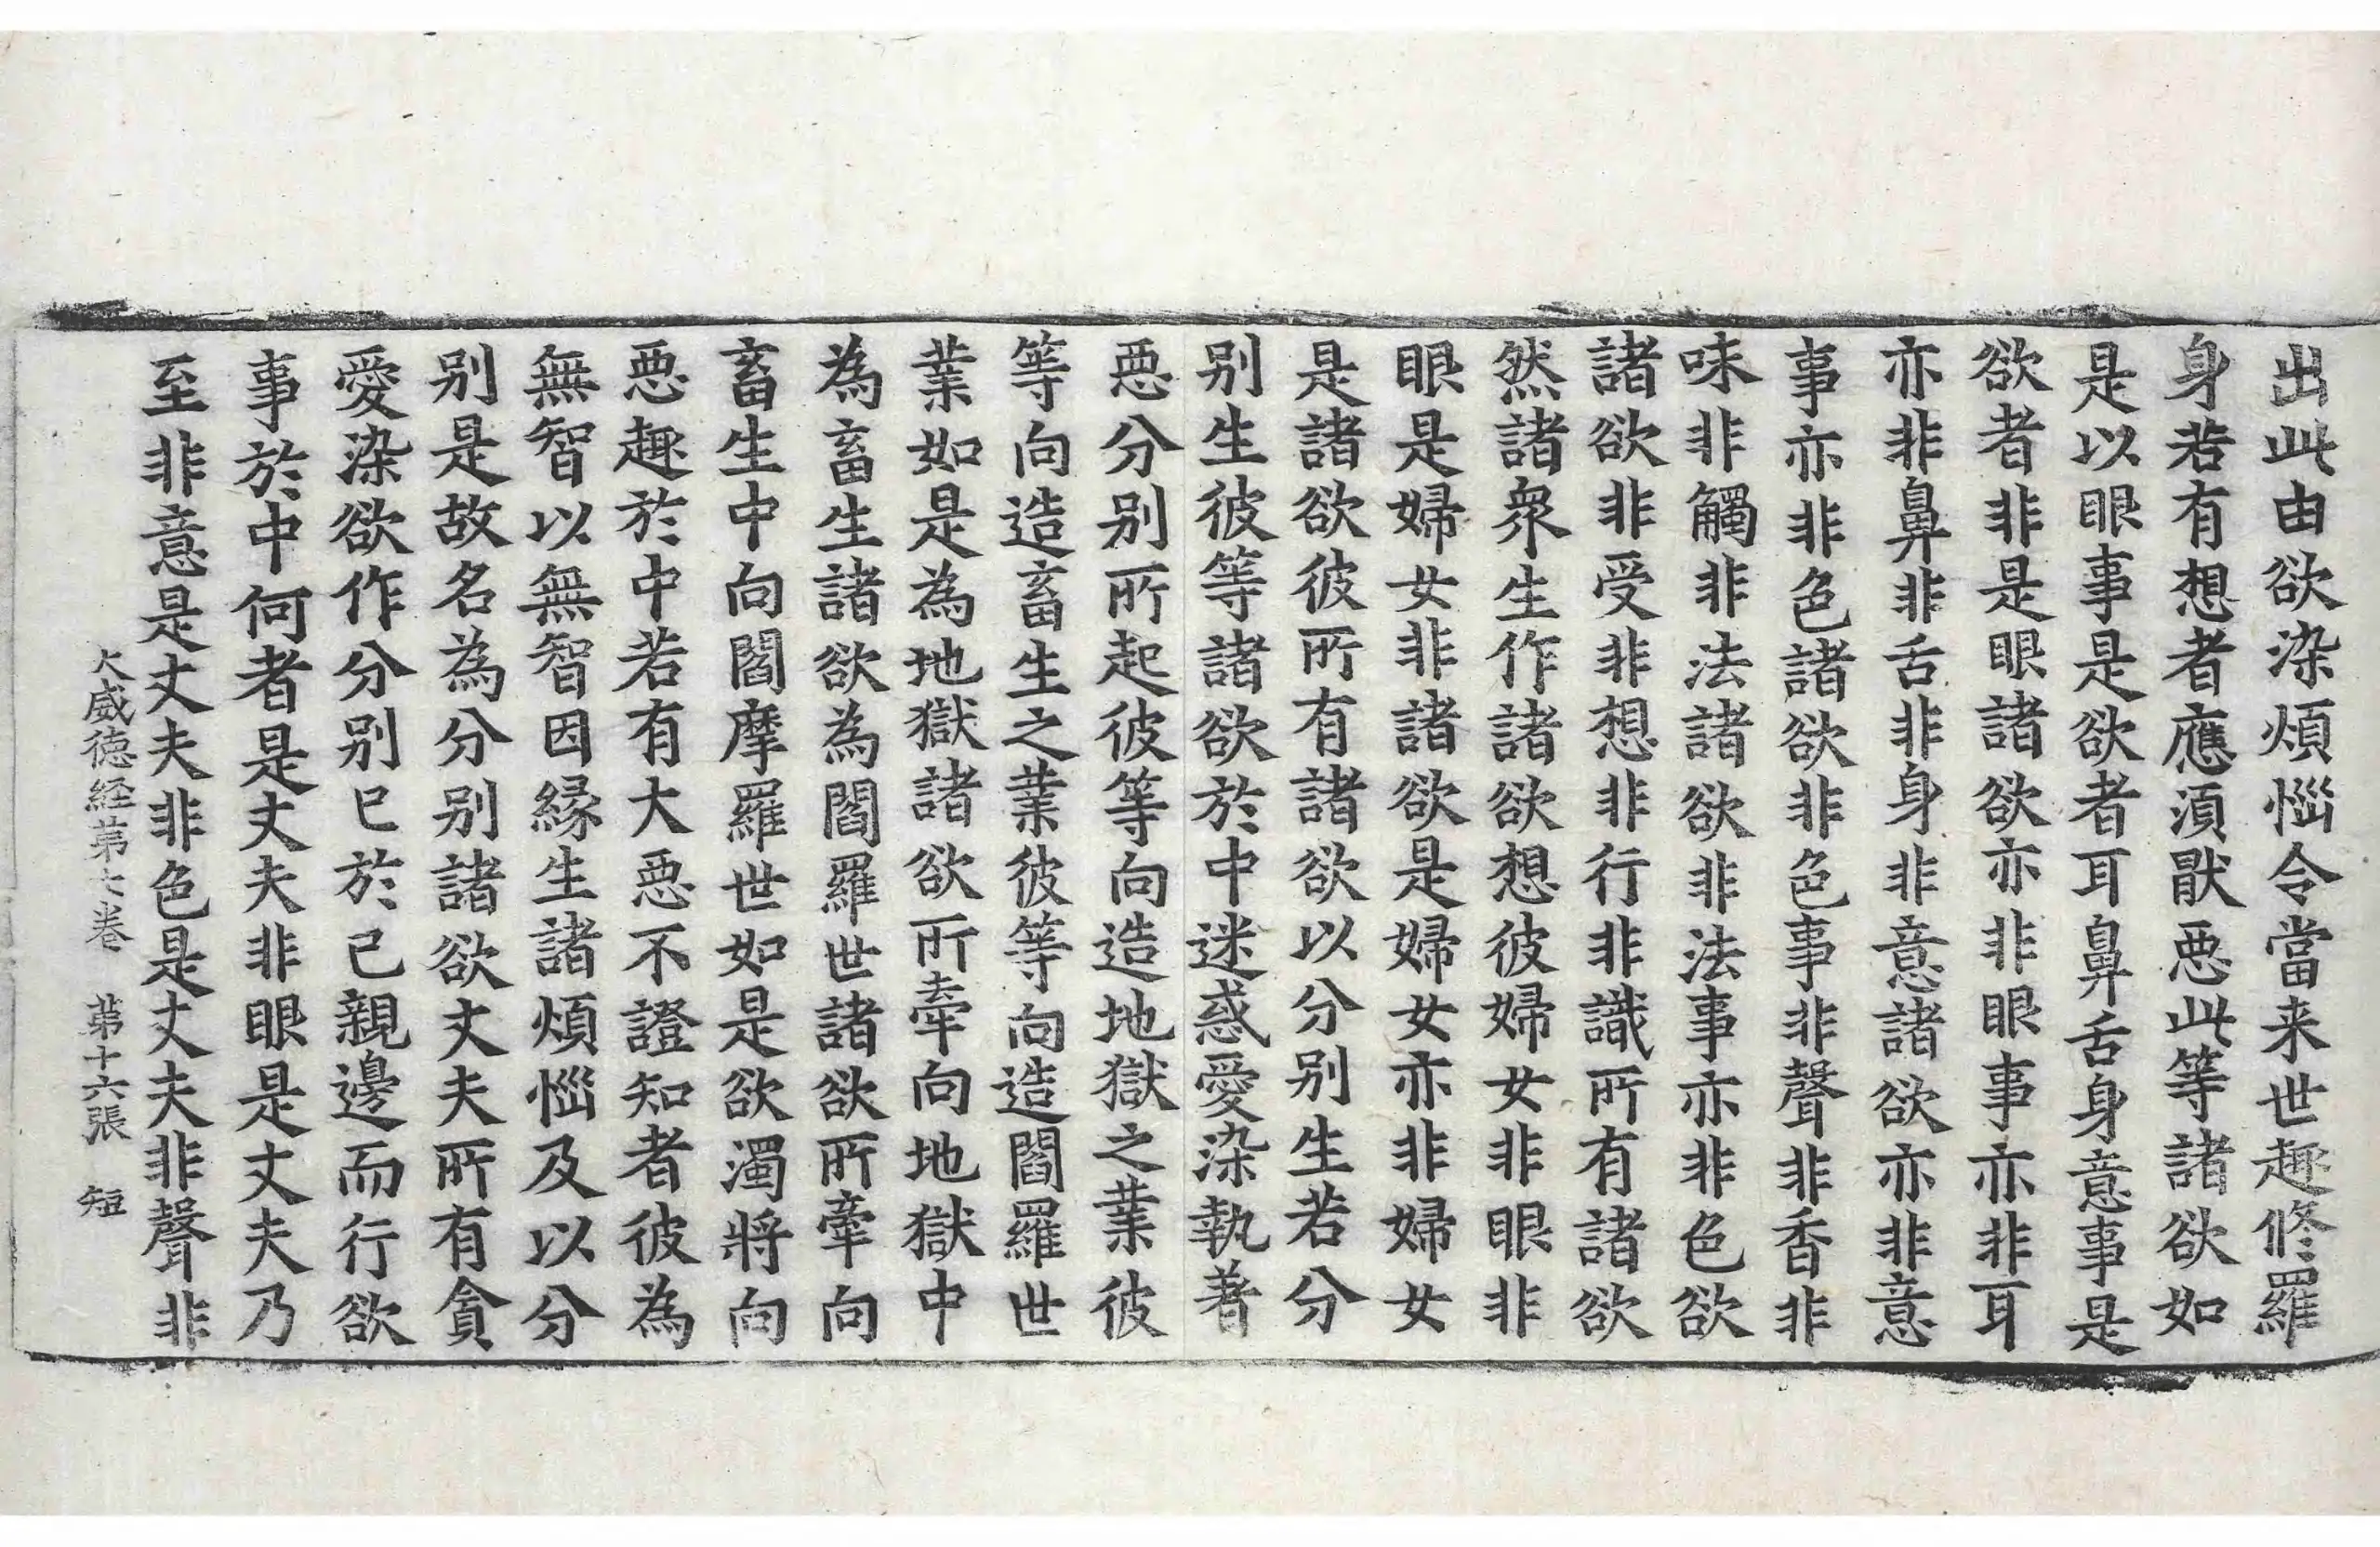 出此由欲染煩惱令當来世趣修羅
身若有想者應湏猒惡此等諸欲如
是以眼事是欲者耳鼻舌身意事是
欲者非是眼諸欲亦非眼事亦非耳
亦非鼻非舌非身非意諸欲亦非意
事亦非色諸欲非色事非聲非香非
味非觸非法諸欲非法事亦非色欲
諸欲非受非想非行非識所有諸欲
然諸衆生作諸欲想彼婦女非眼非
眼是婦女非諸欲是婦女亦非婦女
是諸欲彼所有諸欲以分别生若分
别生彼等諸欲於中迷惑愛染執著
惡分别所起彼等向造地獄之業彼
等向造畜生之業彼等向造閻羅世
業如是為地獄諸欲所牽向地獄中
為畜生諸欲為閻羅世諸欲所牽向
畜生中向閻摩羅世如是欲濁將向
惡趣於中若有大惡不證知者彼為
無智以無智因縁生諸煩惱及以分
别是故名為分别諸欲丈夫所有貪
愛染欲作分别已於己親邊而行欲
事於中何者是丈夫非眼是丈夫乃
至非意是丈夫非色是丈夫非聲非
大威徳経第七卷 第十六張 短